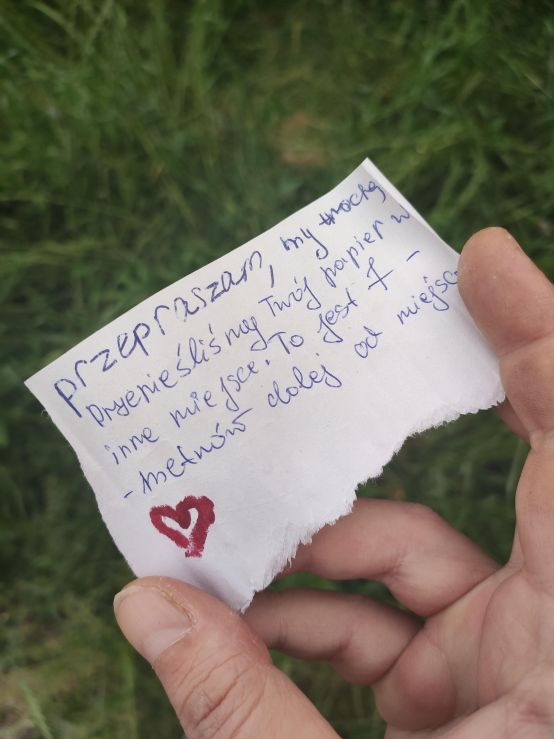 przepraszam, my trochę
pryenieśliśmy Twój papier w
inne miejsce. To jest 7 -
- metnów dalej od miejsc